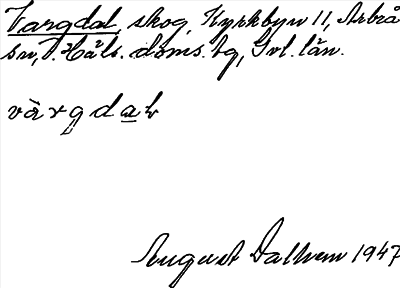 Vargdal, skog, Kyrkbyn 11, Arbrå
sn, V. Häls. doms. hg, Gvl. län.
vàrgdaɫ
August Dalhem 1947